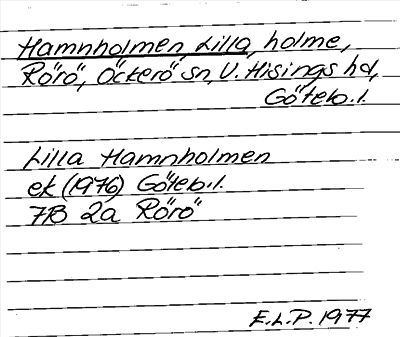 Hamnholmen, Lilla, holme,
Rörö, Öckerö sn, V. Hisings hd,
Göteb.l.
Lilla Hamnholmen
ek (1976) Göteb.l.
7B 2a Rörö
E.L.P. 1977